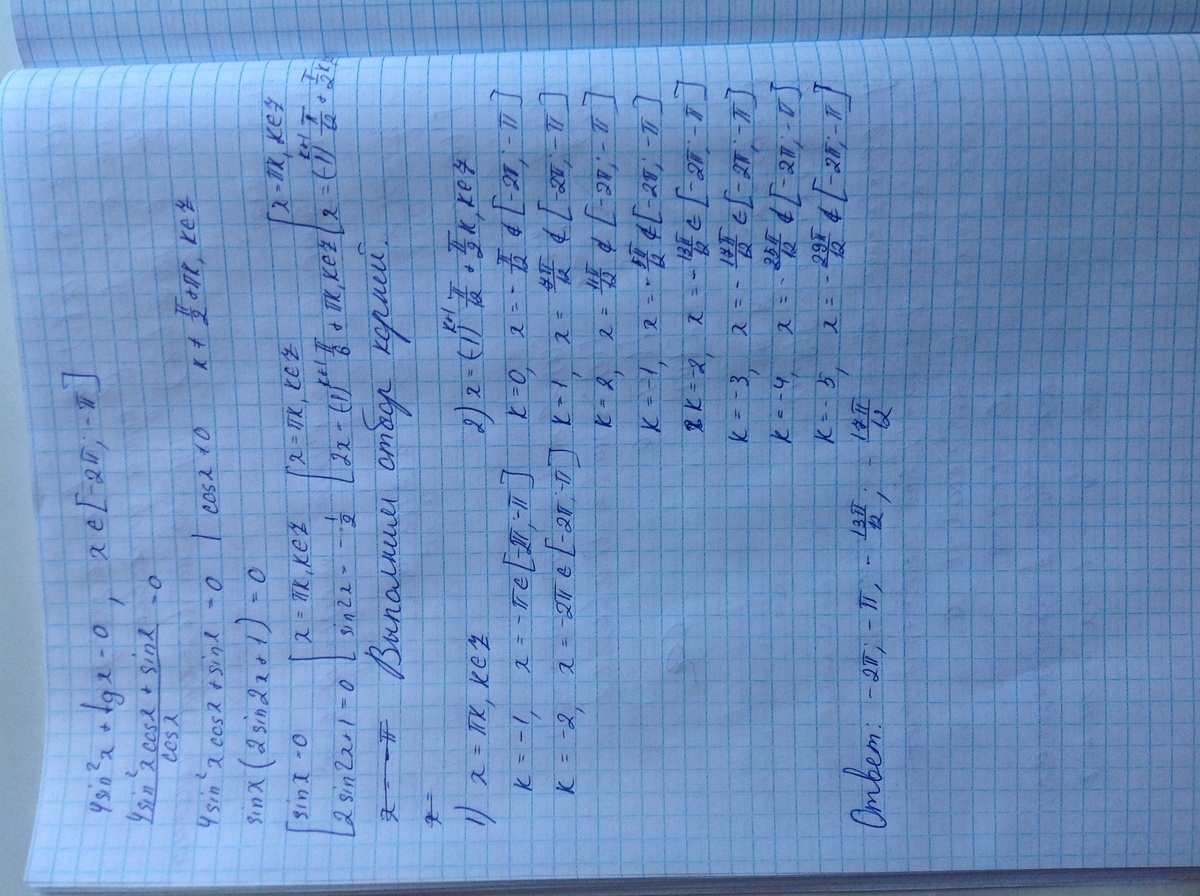 4sin²x + tgx = 0, x ∈ [-2π; -π]
(4sin²x cosx + sinx)/cosx = 0
4sin²x cosx + sinx = 0 | cosx ≠ 0 x ≠ π/2 + πk, k∈Z
sinx(2sin2x + 1) = 0
[sinx = 0 [x = πk, k∈Z [x = πk, k∈Z [x = πk, k∈Z
2sin2x + 1 = 0 sin2x = -1/2 2x = (-1)^(k+1) π/6 + πk, k∈Z x = (-1)^(k+1) π/12 + π/2 k
x = -π Выполним отбор корней.
x =
1) x = πk, k∈Z
k = -1, x = -π ∈ [-2π; -π]
k = -2, x = -2π ∈ [-2π; -π]
2) x = (-1)^(k+1) π/12 + π/2 k, k∈Z
k=0, x = -π/12 ∉ [-2π; -π]
k=1, x = 7π/12 ∉ [-2π; -π]
k=2, x = 11π/12 ∉ [-2π; -π]
k = -1, x = -5π/12 ∉ [-2π; -π]
k = -2, x = -13π/12 ∈ [-2π; -π]
k = -3, x = -17π/12 ∈ [-2π; -π]
k = -4, x = -25π/12 ∉ [-2π; -π]
k = -5, x = -29π/12 ∉ [-2π; -π]
Ответ: -2π; -π, -13π/12; -17π/12